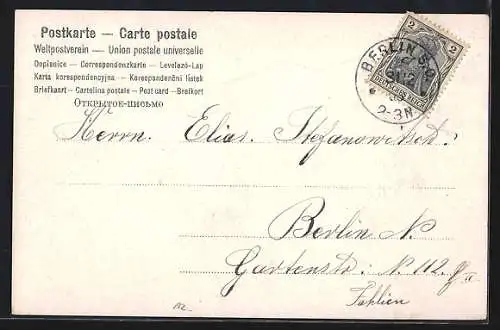 Postkarte — Carte postale
Weltpostverein — Union postale universelle
Dopisnice — Correspondenzkarte — Levelező-Lap
Karta korespondencyjna — Korespondenční lístek
Briefkaart — Cartolina postale — Postcard — Brefkort
ОТКРЫТОЕ-ПИСЬМО
2 2
DEUTSCHES REICH
BERLIN S.O.
31/12
2-3N
Herrn. Elias. Stefanowitsch.
Berlin N.
Gartenstr: N. 112.